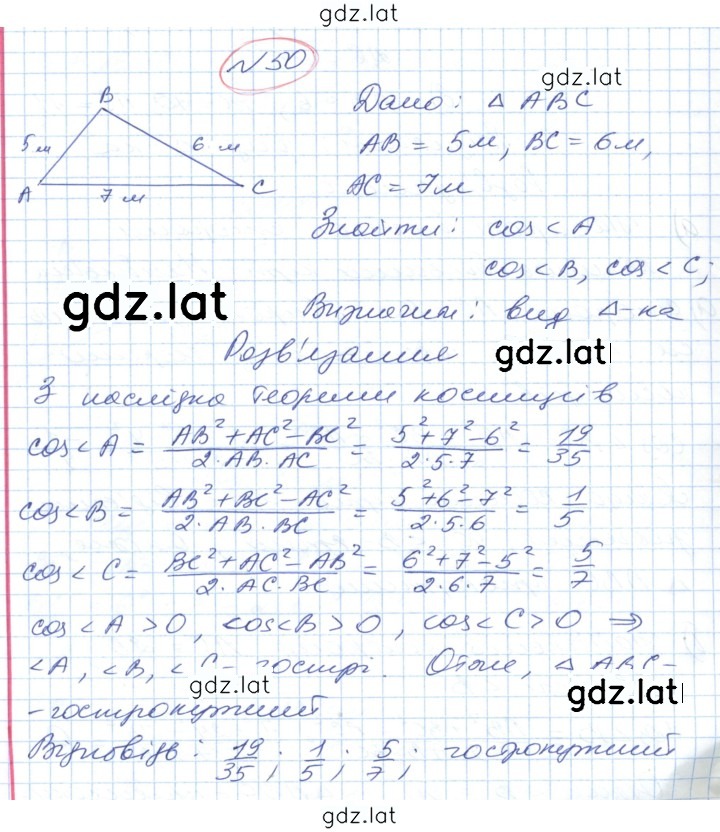 gdz.lat
№50
gdz.lat
B
5м
6 м
A
7 м
C
Дано: △ ABC
AB = 5м, BC = 6м,
AC = 7м
Знайти: cos<A
cos<B, cos<C;
gdz.lat
Визначим: вид △-ка
Розв'язання
gdz.lat
З наслідка теореми косинусів
cos<A = (AB²+AC²-BC²)/(2·AB·AC) = (5²+7²-6²)/(2·5·7) = 19/35
cos<B = (AB²+BC²-AC²)/(2·AB·BC) = (5²+6²-7²)/(2·5·6) = 1/5
cos<C = (BC²+AC²-AB²)/(2·AC·BC) = (6²+7²-5²)/(2·6·7) = 5/7
cos<A >0, cos<B >0, cos<C >0 ⇒
<A, <B, <C- гострі. Отже, △ ABC-
gdz.lat
gdz.lat
-гострокутний.
Відповідь: 19/35; 1/5; 5/7; гострокутний
gdz.lat